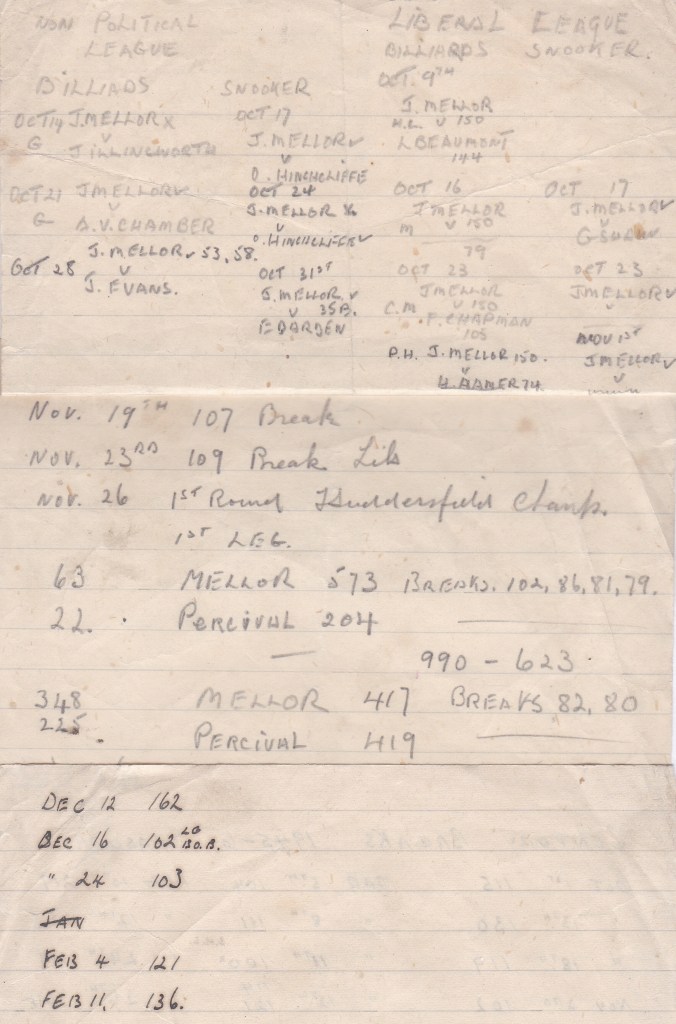 NON POLITICAL
LEAGUE
BILLIADS
OCT 14 J. MELLOR X
G V
J ILLINGWORTH
OCT 21 J MELLOR V
G V
A.V. CHAMBER
J. MELLOR V 53, 58.
OCT 28 V
J. EVANS.
SNOOKER
OCT 17
J. MELLOR V
V
O. HINCHCLIFFE
OCT 24
J. MELLOR
V
O. HINCHCLIFFE V
OCT 31ST
J. MELLOR V
V 35 B.
E DARDEN
LIBERAL LEAGUE
BILLIARDS SNOOKER.
OCT. 9TH
J. MELLOR
H.L. V 150
L BEAUMONT
144
OCT 16
J MELLOR
M V 150
79
OCT 23
J MELLOR
C.M V 150
F. CHAPMAN
105
P.H. J. MELLOR 150.
V
H. HAMER 74.
OCT 17
J. MELLOR V
V
OCT 23
J MELLOR V
V
NOV 1ST
J MELLOR V
V
NOV. 19TH 107 Break
NOV. 23RD 109 Break Lib
NOV. 26 1ST Round Huddersfield Champ.
1ST LEG.
63 MELLOR 573 BREAKS. 102, 86, 81, 79.
22. PERCIVAL 204
990 - 623.
348 MELLOR 417 BREAKS 82, 80
225 PERCIVAL 419
DEC 12 162
DEC 16 102 LG B.O.B.
" 24 103
JAN
FEB 4 121
FEB 11, 136.